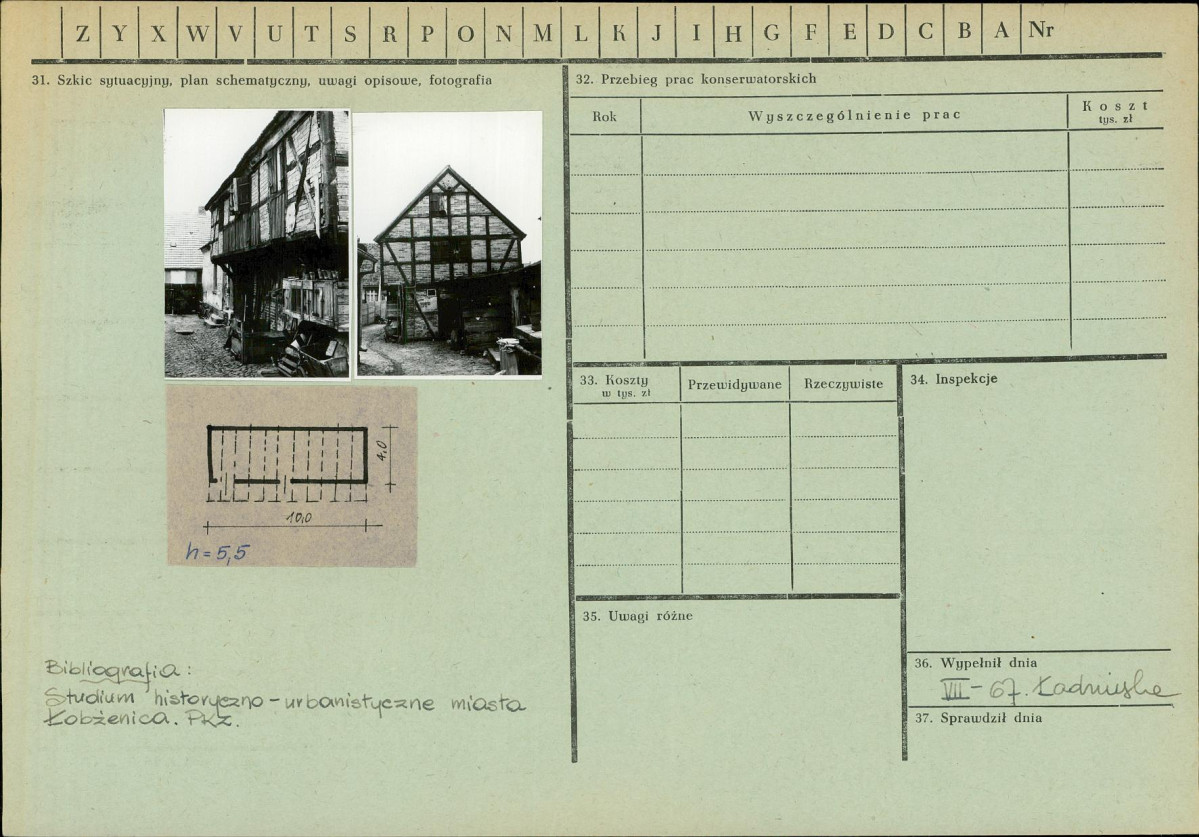 Z Y X W V U T S R P O N M L K J I H G F E D C B A Nr
31. Szkic sytuacyjny, plan schematyczny, uwagi opisowe, fotografia
4,0
10,0
h = 5,5
Bibliografia:
Studium historyczno-urbanistyczne miasta
Łobżenica. PKZ.
32. Przebieg prac konserwatorskich
Rok
Wyszczególnienie prac
Koszt
tys. zł
33. Koszty
w tys. zł
Przewidywane
Rzeczywiste
34. Inspekcje
35. Uwagi różne
36. Wypełnił dnia
VII-67.
37. Sprawdził dnia